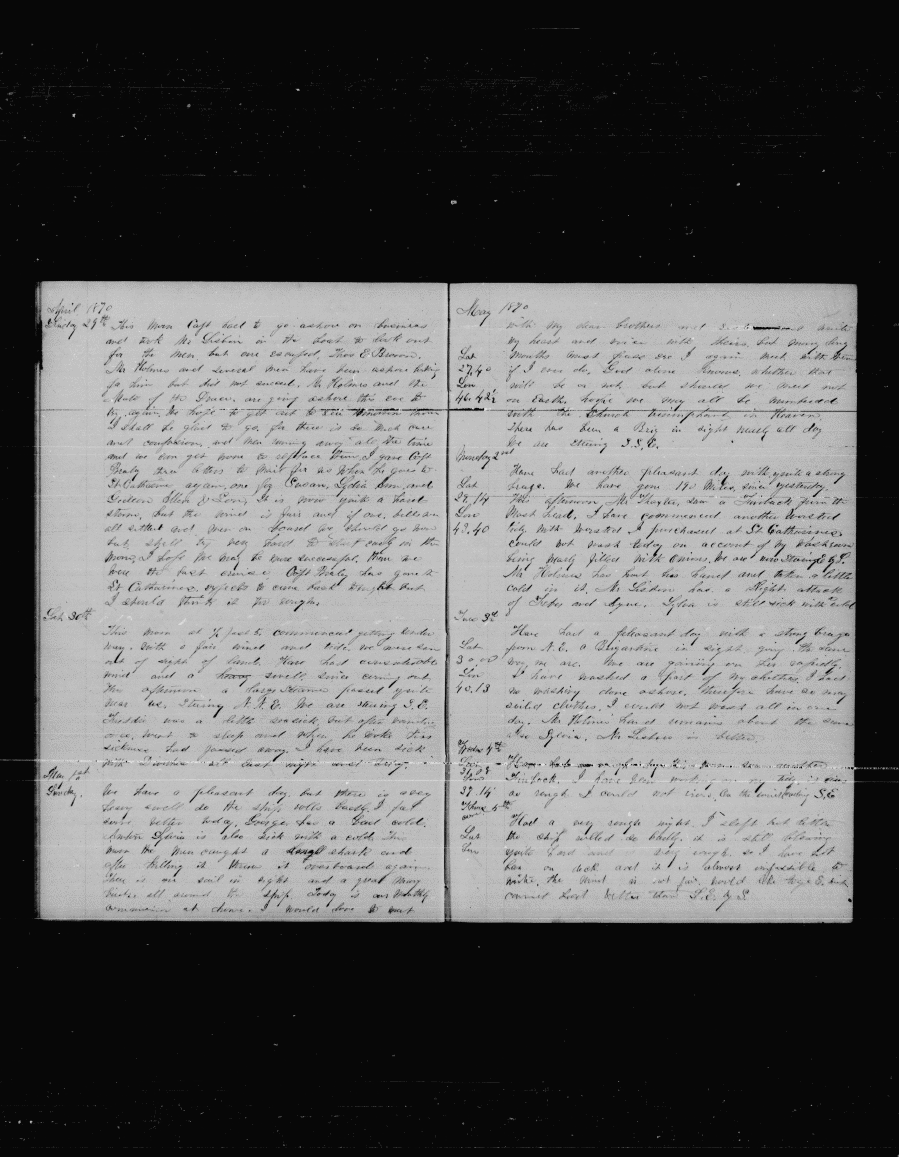 April 1870
Friday 29th This morn Capt had to go ashore on business
and took Mr Lisbon in the boat to look out
for the men, but one escaped, Thos E Brown.
Mr Holmes and several men have been ashore looking
for him but did not succeed. Mr Holmes and the
Mate of the are going ashore this eve to
try again. We hope to get out to sea
I shall be glad to go, for there is so much care
and confusion, and men running away all the time
and we can get none to replace them. I gave Capt
letters to mail for us when he goes to
St Catharine again, one for Susan, Lydia Ann, and
Ellen & It is now quite a hard
storm, but the wind is fair and if
all settled and men on board we should go now
but shall try very hard to start early in the
morn, I hope we may be more successful than we
were the last cruise. Capt has gone to
St. Catharines, expects to come back tonight but
I should think it too rough.
Sat. 30th
This morn at 1/2 past 5, commenced getting under
way. with a fair wind and tide, we were soon
out of sight of land. Have had considerable
wind and a heavy swell, since coming out.
This afternoon a large Steamer passed quite
near us, steering N.N.E. We are steering S.E.
Freddie was a little seasick, but after vomiting
once, went to sleep and when he woke his
sickness had passed away. I have been sick
with last night and today.
May 1st
Sunday.
We have a pleasant day, but there is a very
heavy swell so the ship rolls badly, I feel
some better today, George has a bad cold.
Sylvia is also sick with a cold. This
morn the men caught a small shark and
after killing it threw it overboard again.
There is one sail in sight and a great many
birds all around the ship. Today is our monthly
communion at home. I would love to meet
May 1870
with my dear brothers and and unite
my heart and voice with theirs, but many long
Lat months must pass ere I again meet with them
27.40 if I ever do. God alone knows, whether that
Lon will be or not, but should we meet not
46.42 on Earth, hope we may all be numbered
with the Church triumphant in Heaven.
There has been a Brig in sight nearly all day
We are steering S.S.E.
Monday 2nd
Have had another pleasant day with quite a strong
Lat breeze. We have gone 190 miles, since yesterday
29.14 This afternoon, Mr saw a Finback from the
Lon Mast head. I have commenced another worsted
43.40 tidy with worsted I purchased at St Catharines
could not wash today on account of my washroom
being nearly filled with onions. We are now steering E.S.E.
Mr Holmes has hurt his hand and taken a little
cold in it. Mr Lisbon has a slight attack
of Fever and Ague. Sylvia is still sick with cold
Tues 3d
Have had a pleasant day with a strong breeze
Lat from N.E. a Brigantine in sight going the same
30.00 way we are. We are gaining on her rapidly.
Lon I have washed a part of my clothes, I had
40.13 no washing done ashore, therefore have so many
soiled clothes, I could not wash all in one
day. Mr Holmes hand remains about the same
also Sylvia. Mr Lisbon is better.
Wednes 4th
Lat Have had a rough day. This morn saw another
31.08 Finback, I have been working on my tidy
Lon
37.14 so rough I could not wind heading S.E
Thurs 5th
Had a very rough night. I slept but little
Lat the ship rolled so badly. it is still blowing
Lon quite hard and very rough. so I have not
been on deck and it is almost impossible to
write, the wind is not fair, would like to go E. but
cannot head better than S.E. by S.